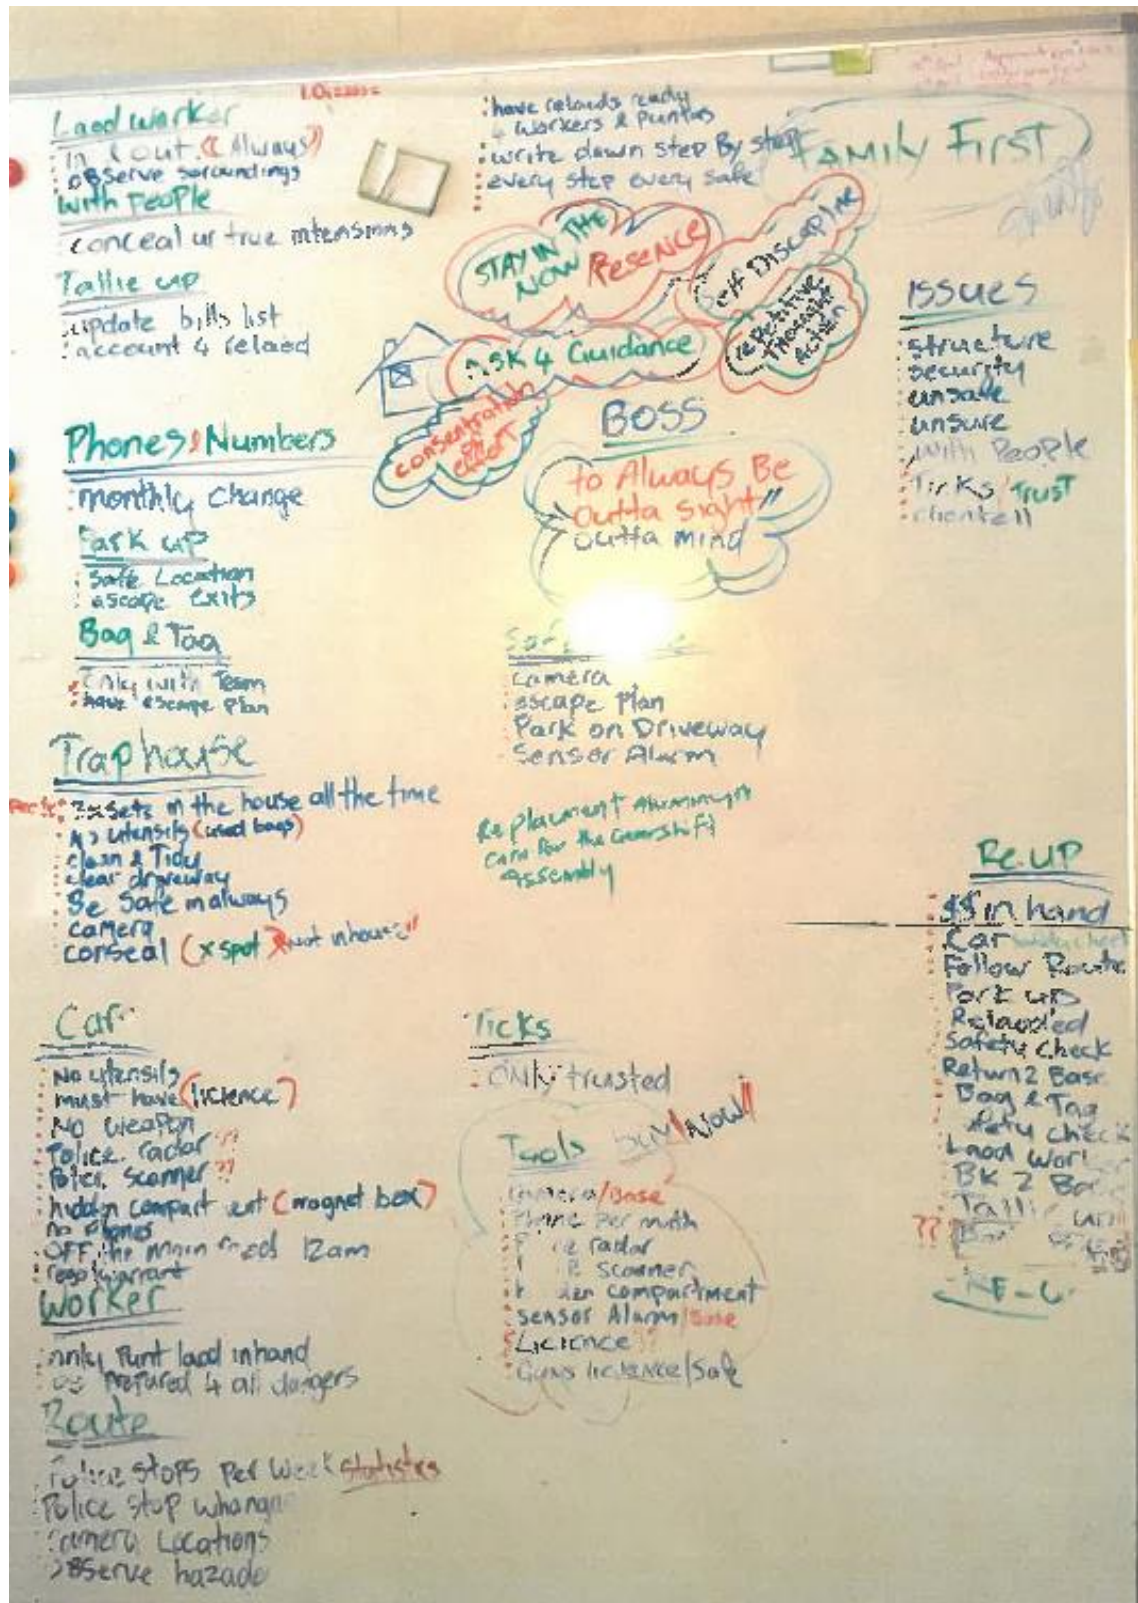 Laod warker
in & out. (( Always ))
observe soroundings
with People
conceal ur true intensinns
Tallie up
update bills list
account 4 relaod
Phones & Numbers
monthly change
Park up
Safe Location
escape Exits
Bag & Tag
Only with Team
have escape Plan
Trap house
sets in the house all the time
utensils (used bags)
clean & Tidy
clear driveway
Be Safe in always
camera
conseal (x spot) Not inhouse"
Car
No utensils
must have (licience)
No weapon
Police. radar ??
Police. Scanner ??
hidden compartment (magnet box)
no phones
OFF the main roads 12am
rego/warrant
Worker
only Punt laod inhand
be Prepured 4 all dangers
Route
Police stops Per Week Statistics
Police stop whanga
camera Locations
observe hazade
have relaods ready
4 workers & Puntas
write down step By step
every step every safe
FAMILY FIRST
STAY IN THE
NOW Presence
Self Discapline
repetitive
Thought
Action
ASK 4 Guidance
consentration
of
effort
BOSS
to Always Be
"Outta sight"
"outta mind
camera
escape Plan
Park on Driveway
Sensor Alarm
Replacment Aluminium
Assembly
Ticks
ONLY trusted
Tools buy Now!!
camera/Base
Phone Per mnth
radar
scanner
compartment
sensor Alarm/Base
Licience ??
Guns licience/Safe
ISSUES
structure
security
unsafe
unsure
with People
Ticks/TRUST
clientell
Re.UP
$$ in hand
Car
Follow Route
Park up
Relaoded
Safety check
Return 2 Base
Bag & Tag
Safety check
Laod Worker
BK 2 Base
Tallie up
??
RE-U